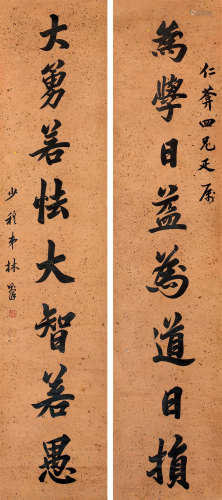 仁莽四兄疋屬
為學日益為道日損
大勇若怯大智若愚
少穆弟林則徐